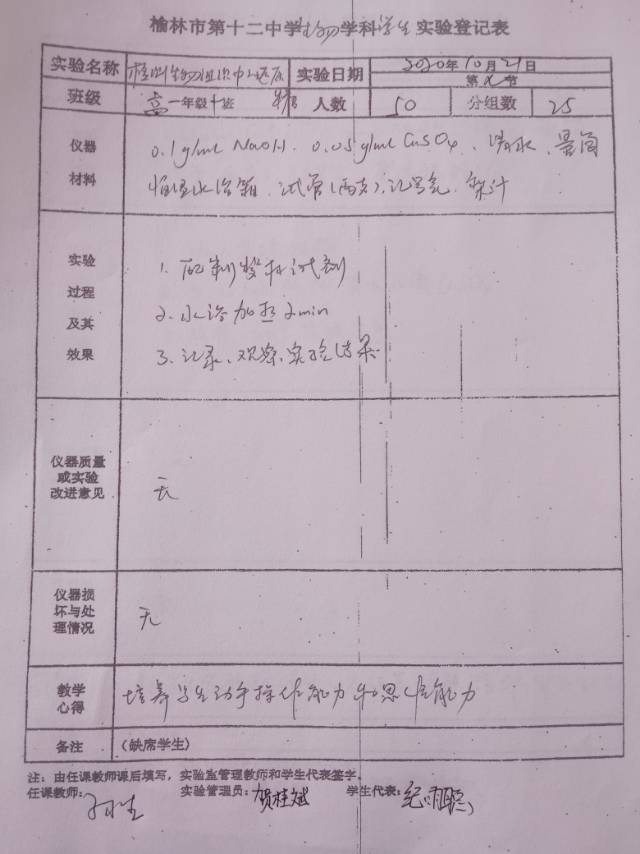 榆林市第十二中学生物学科学生实验登记表
实验名称 检测生物组织中的还原糖 实验日期 2020年10月21日
第 节
班级 高一年级十班 人数 50 分组数 25
仪器材料 0.1g/ml NaOH、0.05g/ml CuSO₄、清水、量筒
恒温水浴箱、试管(两支)、记号笔、梨汁
实验过程及其效果
1. 配制斐林试剂
2. 水浴加热2min
3. 记录、观察、实验结果
仪器质量或实验改进意见 无
仪器损坏与处理情况 无
教学心得 培养学生动手操作能力和思维能力
备注 (缺席学生)
注:由任课教师课后填写,实验室管理教师和学生代表签字。
任课教师: 实验管理员:贺桂斌 学生代表:纪雨聪